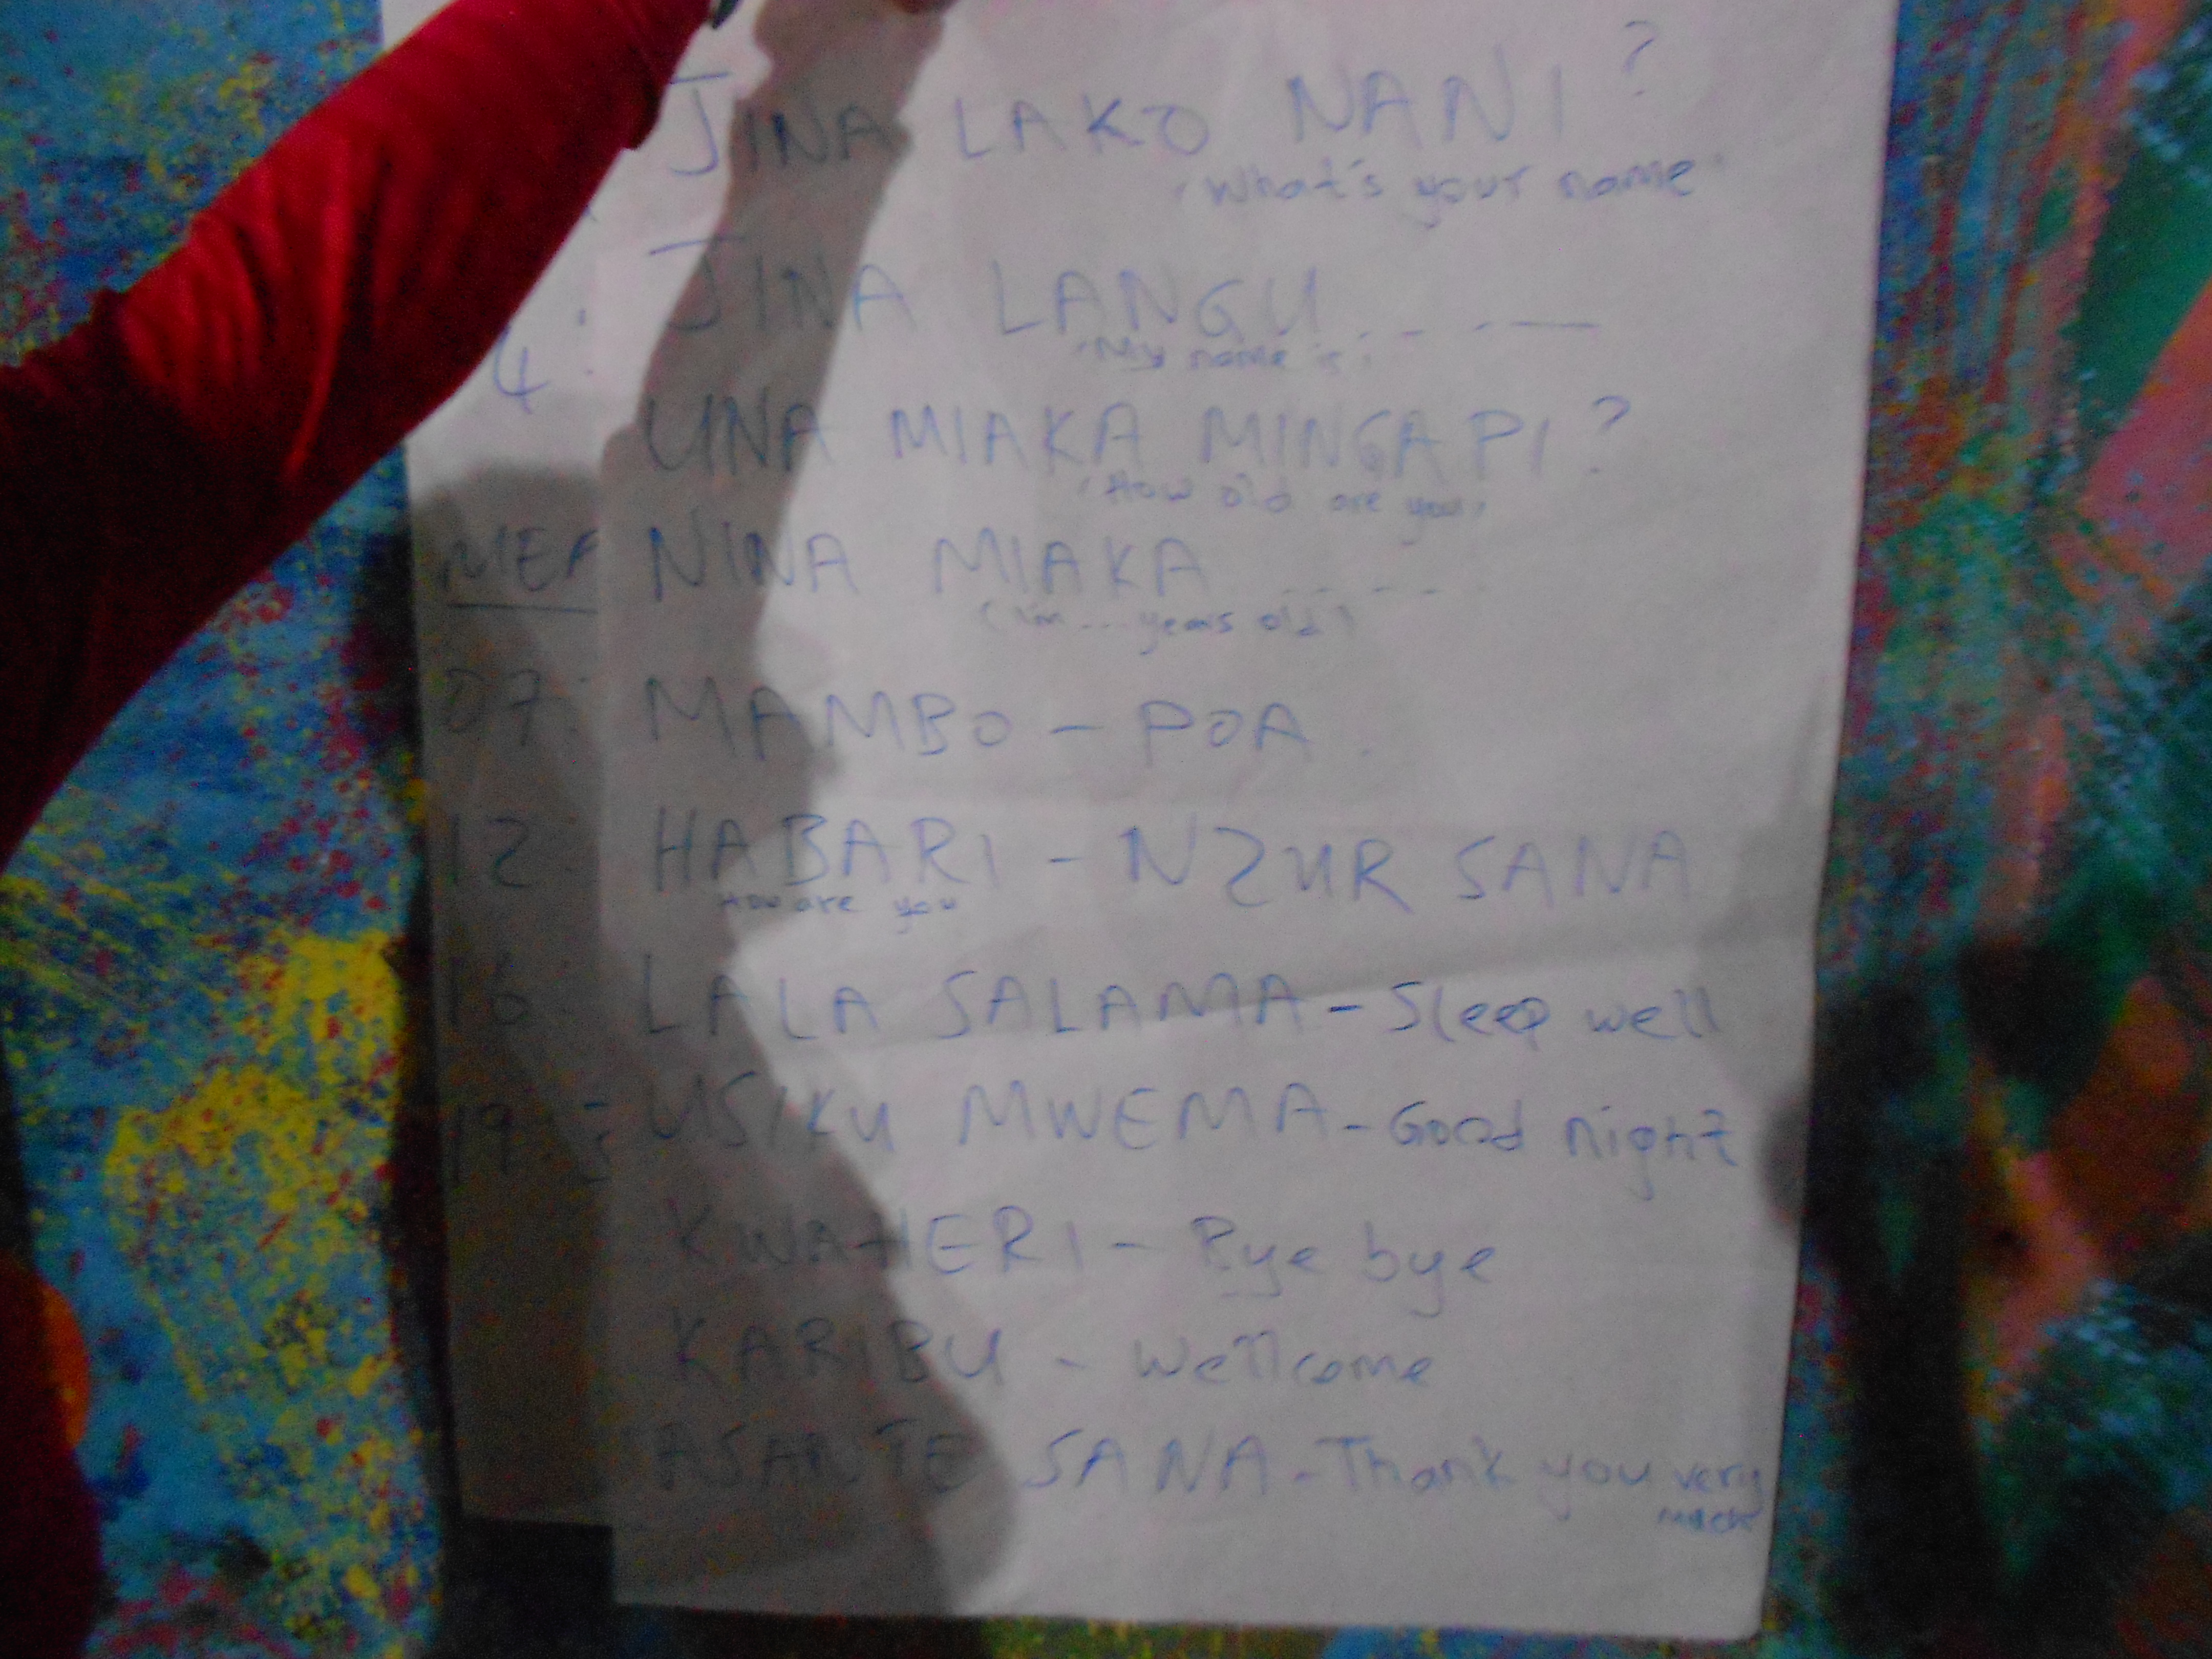 JINA LAKO NANI ?
"What's your name"
JINA LANGU ...—
"My name is"
4 :
UNA MIAKA MINGAPI ?
(How old are you)
MEA
NINA MIAKA .....
(I'm ... years old)
07: MAMBO - POA .
12: HABARI - NZUR SANA
How are you
16: LALA SALAMA - Sleep well
19: USIKU MWEMA - Good night
KWAHERI - Bye bye
KARIBU - Wellcome
ASANTE SANA - Thank you very
much